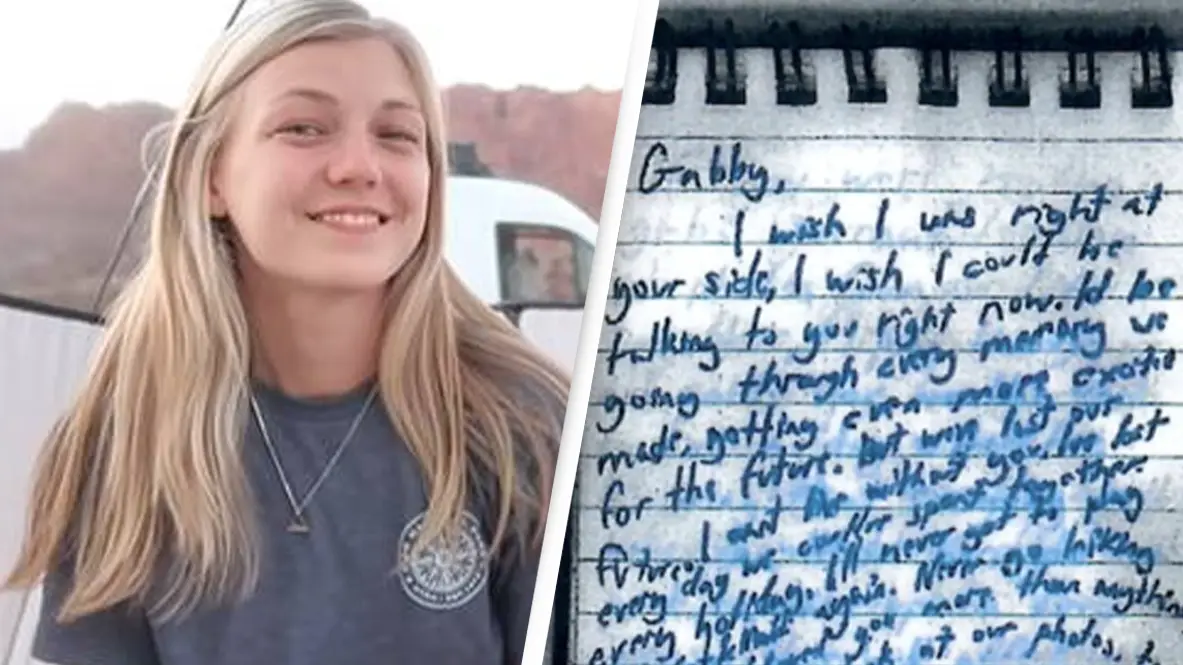 Gabby,
I wish I was right at
your side, I wish I could be
talking to you right now. Id be
going through every memory we
made, getting even more excited
for the future. but lost our
future. I cant without you. Ive lost
every day we spent together
every holiday. Ill never get to play
again. Never go hiking
you more than anything
at our photos,